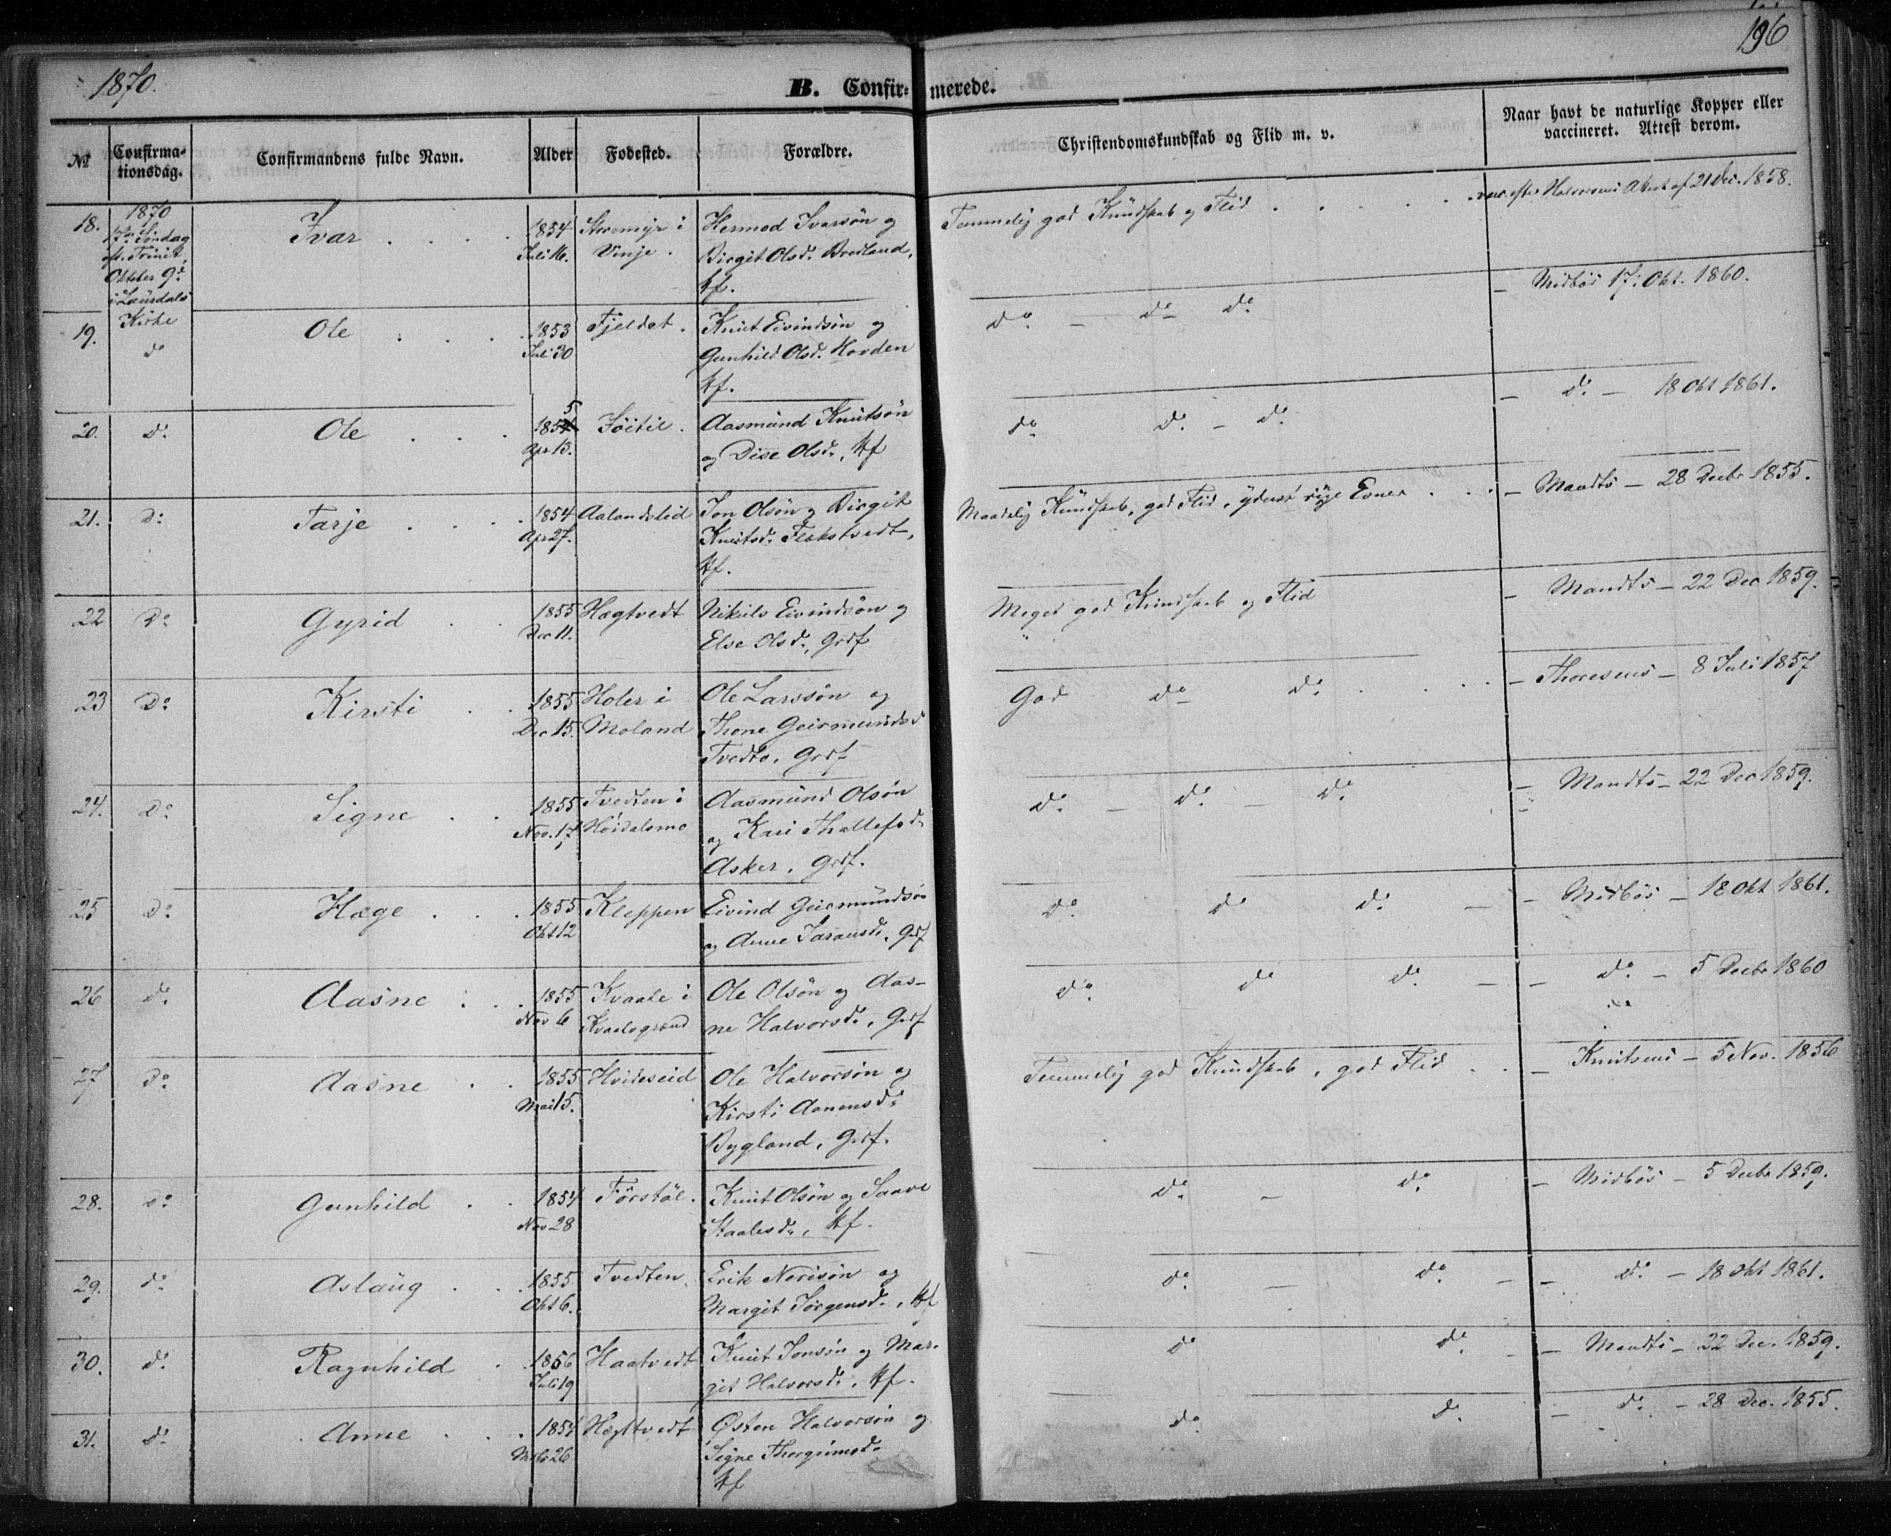 1870.
196
B. Confirmerede.
№
Confirmationsdag.
Confirmandens fulde Navn.
Alder
Fødested.
Forældre.
Christendomskundskab og Flid m. v.
Naar havt de naturlige Kopper eller vaccineret. Attest derom.
18.
1870
Søndag
eft. Trinit.
Oktober 9de
i Laurdals
Kirke
Ivar
1854
Juli 16.
i
Vinje.
Hermod Ivarsøn og
Birgit Olsd. Bredland,
Hf.
Temmelig god Kundskab og Flid
Attest af 21 Dec. 1858.
19.
do
Ole
1853
Juli 30
Fjeldet.
Knut Eivindsøn og
Gunhild Olsd. Horden
Hf.
do - do do
- Midbøs 17. Okt. 1860.
20.
do
Ole
1855
Apr 13.
Aasmund Knutsøn
og Dise Olsd., Hf
do do - do
- do - 18 Okt 1861.
21.
do
Tarje
1854
Apr 27.
Aalandslid
Jon Olsøn og Birgit
Knutsd. Flekstvedt,
Hf.
Maadelig Kundskab, god Flid, yderst ringe Evner
- Mandts - 28 Decbr 1855.
22
do
Gyrid
1855
Dec 11.
Hægtvedt
Nikuls Eivindsøn og
Else Olsd., Grdf
Meget god Kundskab og Flid
- Mandts - 22 Dec 1859.
23
do
Kirsti
1855
Dec 15.
Holer i
Moland
Ole Larssøn og
Thone Geirmundsd
Tvedto, Grdf
God do do
- Thoresens - 8 Juli 1857
24.
do
Signe
1855
Nov. 17
Tvedten i
Høidalsmo
Aasmund Olsøn
og Kari Thallefsd.
Asker, Grdf.
do - do - do
- Mandts - 22 Dec 1859.
25
do
Hæge
1855
Okt 12
Kleppen
Eivind Geirmundsøn
og Anne Saraasd., Grdf
do do do
- Midbøs - 18 Okt 1861.
26
do
Aasne
1855
Nov 6
Kvaale i
Ole Olsøn og Aas-
ne Halvorsd., Grdf
do do do
- do - 5 Decbr 1860
27
do
Aasne
1855
Mai 15.
Hvideseid
Ole Halvorsøn og
Kirsti Aanensd.
Bygland, Grdf.
Temmelig god Kundskab, god Flid
- Knutsens - 5 Nov. 1856
28.
do
Gunhild
1854
Nov 28
Førstøl.
Knut Olsøn og Saave
Staalesd., Hf.
do - do
- Midbøs - 5 Decbr 1859.
29.
do
Aslaug
1855
Okt 6.
Tvedten.
Erik Nerisøn og
Margit Jørgensd., Hf
do - do
- do - 18 Okt 1861.
30.
do
Ragnhild
1856
Juli 19
Haatvedt
Knut Jonsøn og Mar-
git Halvorsd., Hf.
do do
- Mandts - 22 Dec. 1859.
31.
do
Anne
26
Hægtvedt
Østen Halvorsøn og
Signe Thorgrimsd.
Hf
do do
- do - 28 Dec. 1855.